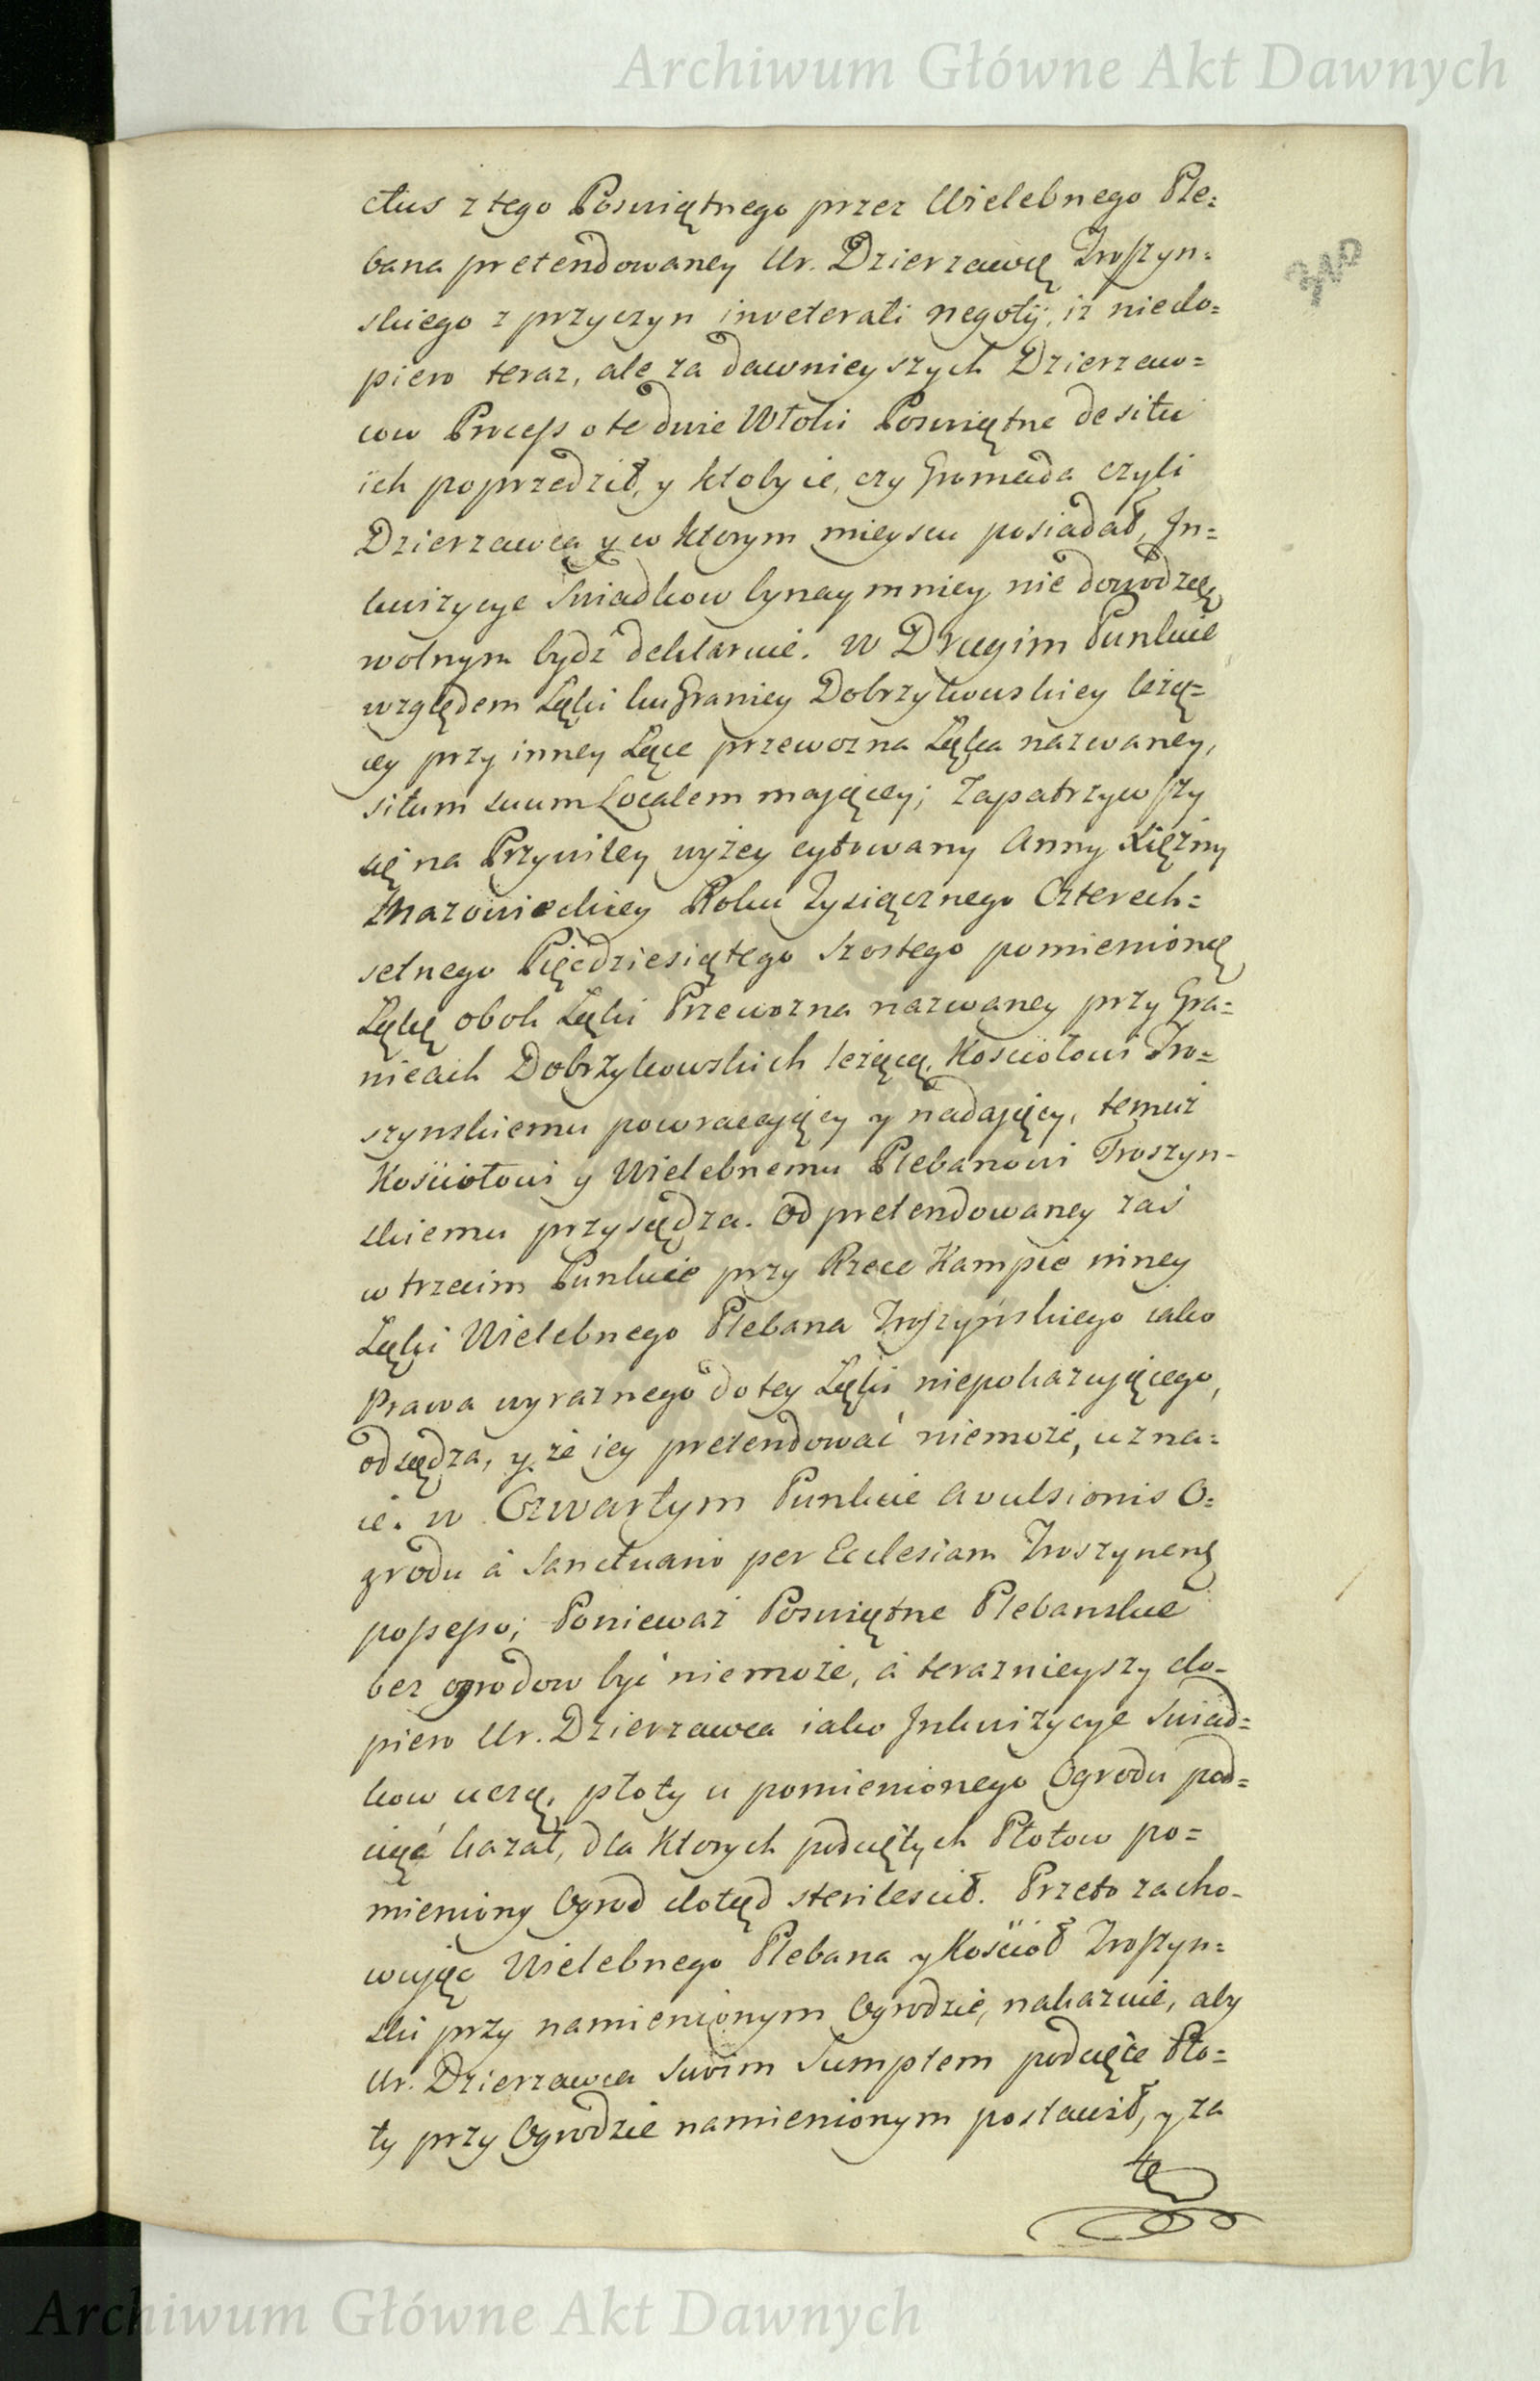 Archiwum Główne Akt Dawnych
ctus z tego Poswiętnego przez Wielebnego Ple=
bana pretendowaney Ur. Dzierzawcę Troszyn=
skiego z przyczyn inveterati negotij, iż niedo=
piero teraz, ale za dawnieyszych Dzierzaw=
cow Process o te dwie Włoki Poswiętne de situ
ich poprzedził, y ktoby ie, czy Gromada czyli
Dzierzawca y w ktorym mieyscu posiadał, In=
kwizycye Swiadkow bynaymniey nie dowodzą,
wolnym bydź deklaruie. W Drugim Punkcie
względem Łąki ku Granicy Dobrzykowskiey leżą=
cey przy inney Łące przewozna Łąka nazwaney,
situm suum Localem maiącey; zapatrzywszy
się na Przywiley wyżey cytowany Anny Xiężny
Mazowieckiey Roku Tysiącznego Czterech=
setnego Pięcdziesiątego Szostego pomienioną
Łąkę obok Łąki Przewozna nazwaney przy Gra=
nicach Dobrzykowskich leżącą, Kosciołowi Tro=
szynskiemu powracaiący y nadaiący, temuż
Kosciołowi y Wielebnemu Plebanowi Troszyn-
skiemu przysądza. Od pretendowaney zaś
w trzecim Punkcie przy Rzece Kampie inney
Łąki Wielebnego Plebana Troszyńskiego iako
Prawa wyraznego do tey Łąki niepokazuiącego,
odsądza, y że iey pretendować niemoże, uzna=
ie. W Czwartym Punkcie avulsionis O=
grodu à Sanctuario per Ecclesiam Troszynens
possesso; Ponieważ Poswiętne Plebanskie
bez ogrodow być niemoże, á teraznieyszy do-
piero Ur. Dzierzawca iako Inkwizycye Swiad=
kow uczą, płoty u pomienionego Ogrodu pod=
ciąć kazał, dla ktorych podciętych Płotow po=
mieniony Ogrod dotąd sterilescit. Przeto zacho-
wuiąc Wielebnego Plebana y Kościoł Troszyn=
ski przy namienionym Ogrodzie, nakazuie, aby
Ur. Dzierzawca Swoim Sumptem podcięte Pło=
ty przy Ogrodzie namienionym postawił, y za
tę
Archiwum Główne Akt Dawnych